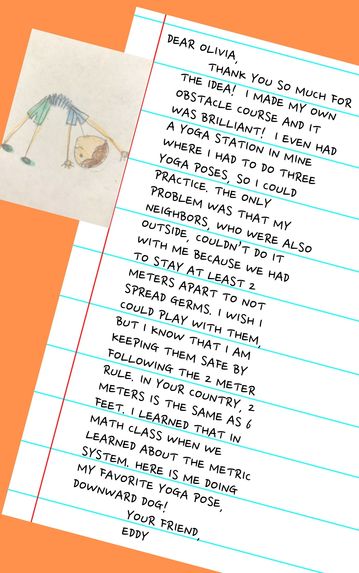 DEAR OLIVIA,
THANK YOU SO MUCH FOR
THE IDEA! I MADE MY OWN
OBSTACLE COURSE AND IT
WAS BRILLIANT! I EVEN HAD
A YOGA STATION IN MINE
WHERE I HAD TO DO THREE
YOGA POSES, SO I COULD
PRACTICE. THE ONLY
PROBLEM WAS THAT MY
NEIGHBORS, WHO WERE ALSO
OUTSIDE, COULDN'T DO IT
WITH ME BECAUSE WE HAD
TO STAY AT LEAST 2
METERS APART TO NOT
SPREAD GERMS. I WISH I
COULD PLAY WITH THEM,
BUT I KNOW THAT I AM
KEEPING THEM SAFE BY
FOLLOWING THE 2 METER
RULE. IN YOUR COUNTRY, 2
METERS IS THE SAME AS 6
FEET. I LEARNED THAT IN
MATH CLASS WHEN WE
LEARNED ABOUT THE METRIC
SYSTEM. HERE IS ME DOING
MY FAVORITE YOGA POSE,
DOWNWARD DOG!
YOUR FRIEND,
EDDY